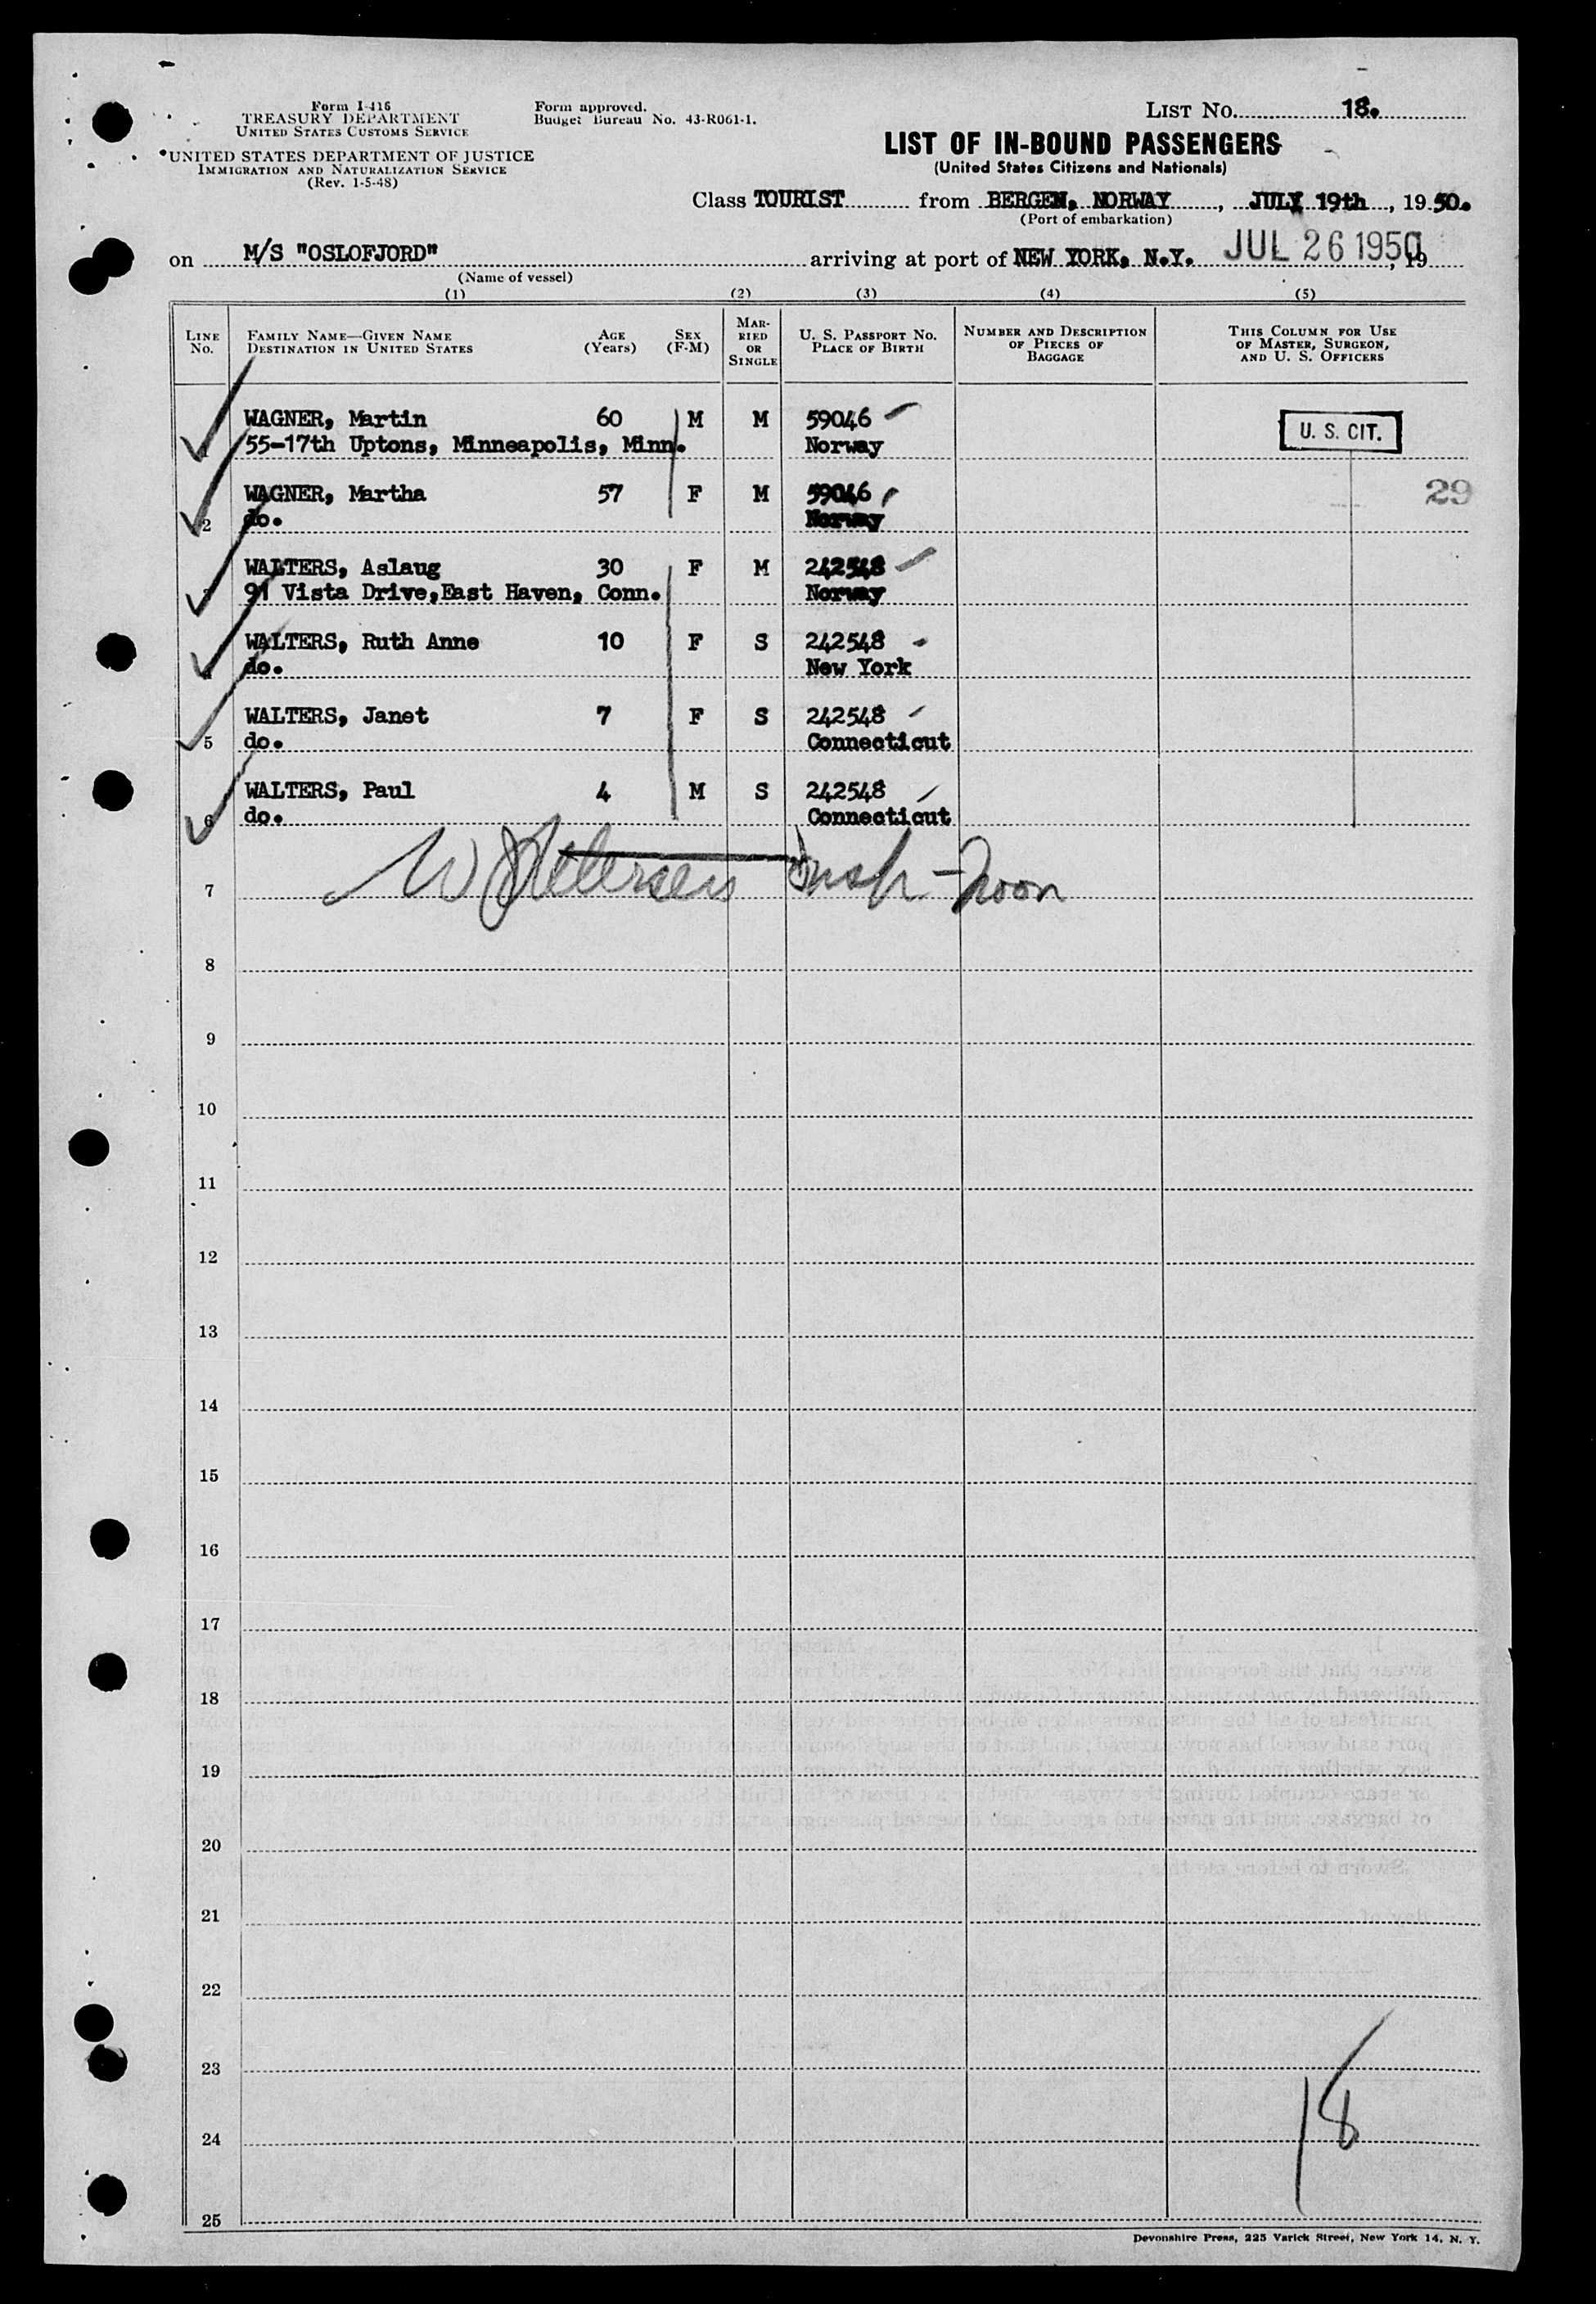 Form I-416
TREASURY DEPARTMENT
UNITED STATES CUSTOMS SERVICE
UNITED STATES DEPARTMENT OF JUSTICE
IMMIGRATION AND NATURALIZATION SERVICE
(Rev. 1-5-48)
Form approved.
Budget Bureau No. 43-R061-1.
LIST No. 18.
LIST OF IN-BOUND PASSENGERS
(United States Citizens and Nationals)
Class TOURIST from BERGEN, NORWAY, JULY 19th, 1950.
(Port of embarkation)
on M/S "OSLOFJORD" arriving at port of NEW YORK, N.Y. JUL 26 1950, 19
(Name of vessel)
(1) (2) (3) (4) (5)
LINE No. FAMILY NAME—GIVEN NAME DESTINATION IN UNITED STATES AGE (Years) SEX (F-M) MARRIED OR SINGLE U. S. PASSPORT No. PLACE OF BIRTH NUMBER AND DESCRIPTION OF PIECES OF BAGGAGE THIS COLUMN FOR USE OF MASTER, SURGEON, AND U. S. OFFICERS
WAGNER, Martin 60 M M 59046 U. S. CIT.
1 55-17th Uptons, Minneapolis, Minn. Norway
WAGNER, Martha 57 F M 59046 29
2 do. Norway
WALTERS, Aslaug 30 F M 242548
3 91 Vista Drive,East Haven, Conn. Norway
WALTERS, Ruth Anne 10 F S 242548
4 do. New York
WALTERS, Janet 7 F S 242548
5 do. Connecticut
WALTERS, Paul 4 M S 242548
6 do. Connecticut
7 Insp - Noon
8
9
10
11
12
13
14
15
16
17
18
19
20
21
22
23
24
18
25
Devonshire Press, 225 Varick Street, New York 14, N. Y.